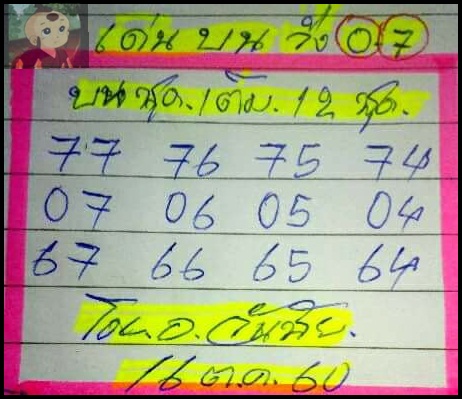 เด่น บน วิ่ง 0 7
บน ชุด.เต็ม.12 ชุด.
77 76 75 74
07 06 05 04
67 66 65 64
โดย.อ.
16 ต.ค. 60